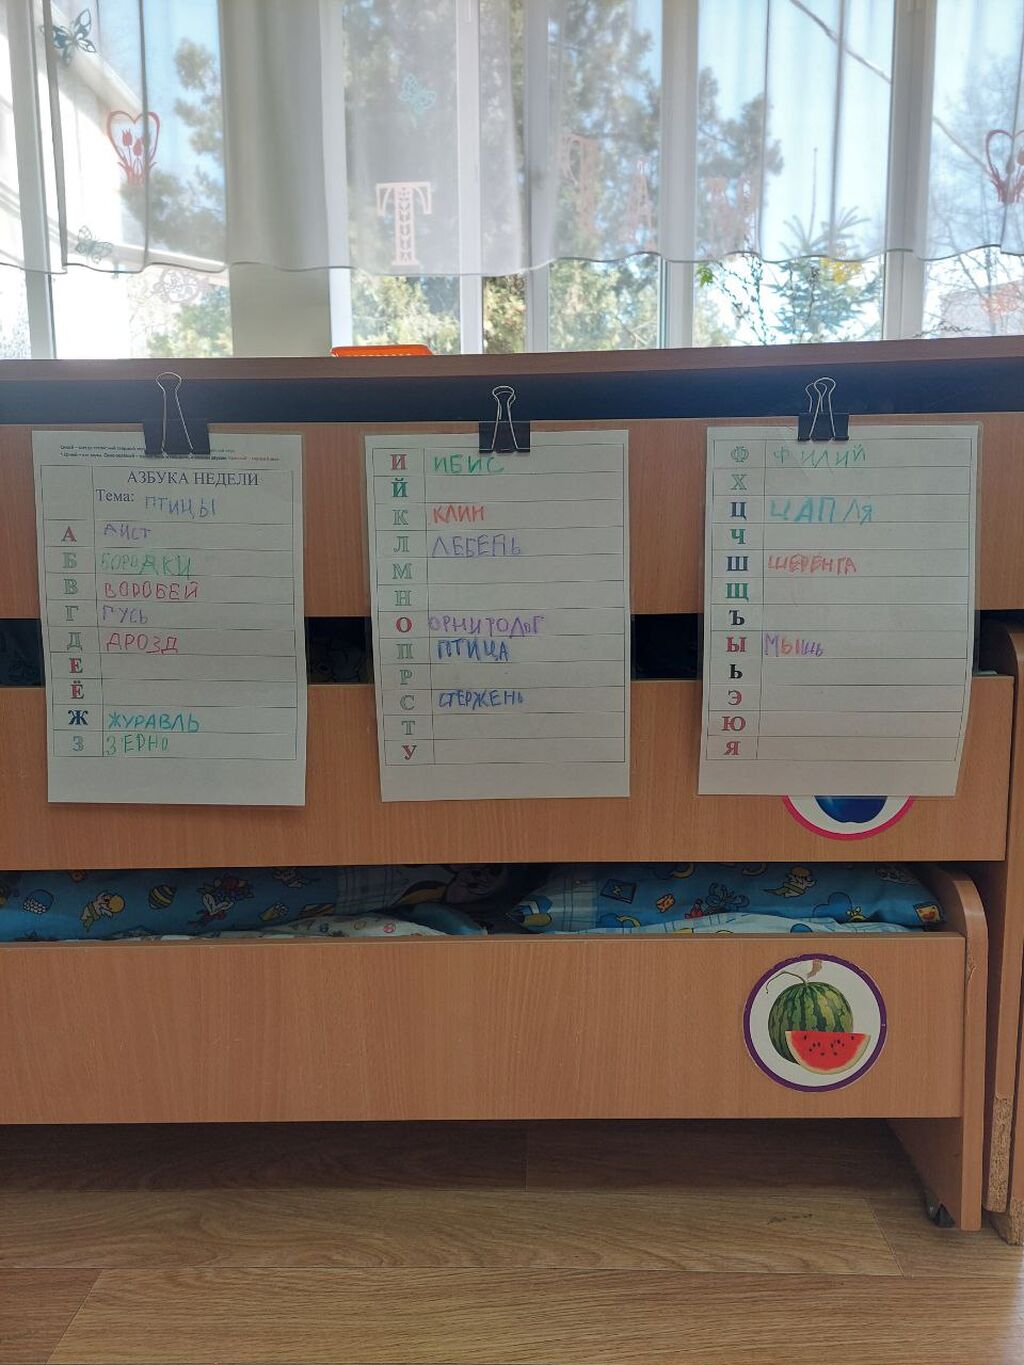 АЗБУКА НЕДЕЛИ
Тема: ПТИЦЫ
А АИСТ
Б БОРОДКИ
В ВОРОБЕЙ
Г ГУСЬ
Д ДРОЗД
Е
Ё
Ж ЖУРАВЛЬ
З ЗЕРНО
И ИБИС
Й
К КЛИН
Л ЛЕБЕДЬ
М
Н
О ОРНИТОЛОГ
П ПТИЦА
Р
С СТЕРЖЕНЬ
Т
У
Ф ФИЛИЙ
Х
Ц ЦАПЛЯ
Ч
Ш ШЕРЕНГА
Щ
Ъ
Ы МЫШЬ
Ь
Э
Ю
Я